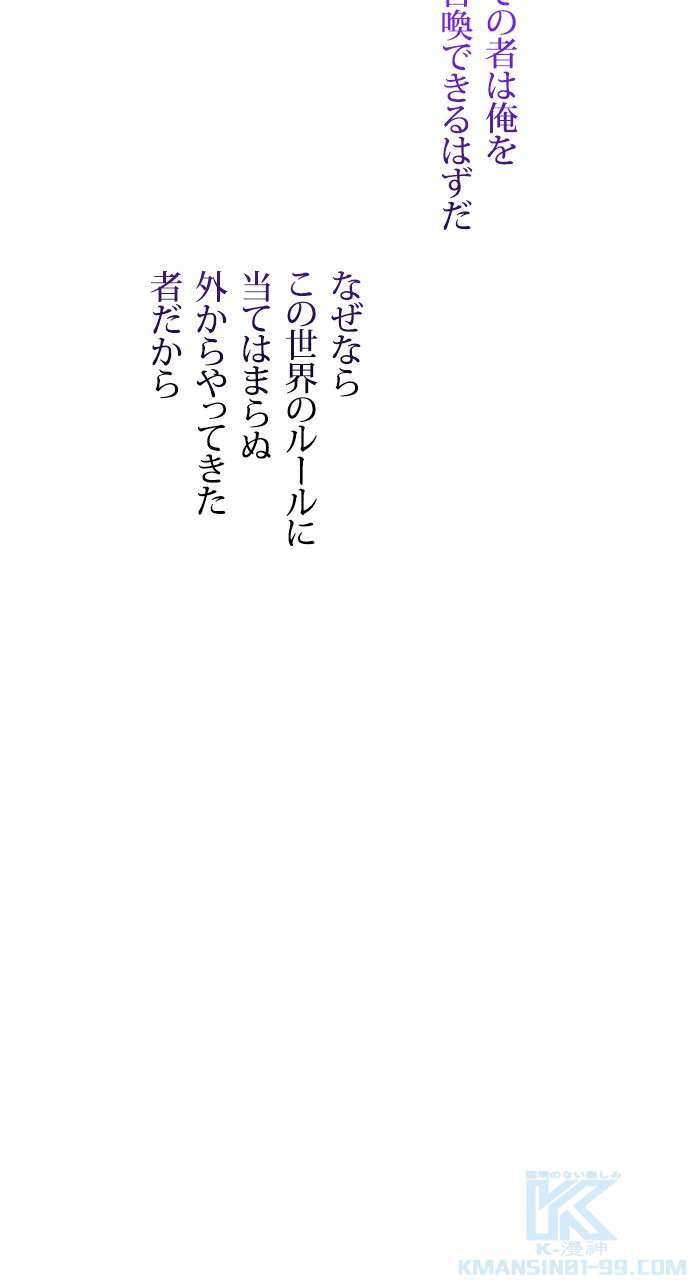 の者は俺を
喚できるはずだ
なぜなら
この世界のルールに
当てはまらぬ
外からやってきた
者だから
K-漫神
KMANSIN01-99.COM